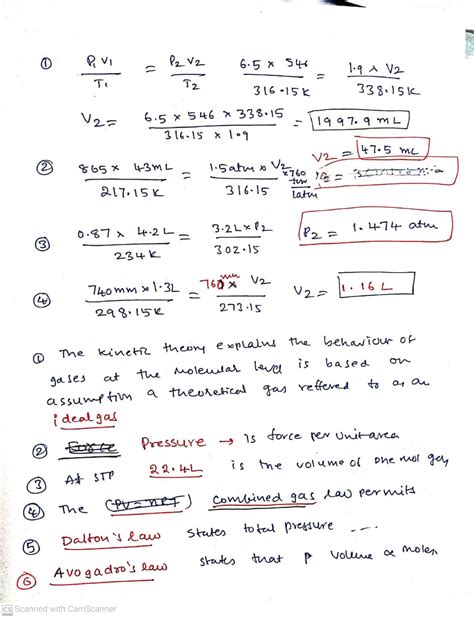 ① P₁ V₁ / T₁ = P₂ V₂ / T₂    6.5 x 546 / 316.15K = 1.9 x V2 / 338.15K
V2 = 6.5 x 546 x 338.15 / 316.15 x 1.9 = 1997.9 mL
② 865 x 43mL / 217.15K = 1.5atm x V2 x 760 torr / 316.15 1atm    V2 = 47.5 mL
③ 0.87 x 4.2L / 234K = 3.2L x P2 / 302.15    P2 = 1.474 atm
④ 740mm x 1.3L / 298.15K = 760mm x V2 / 273.15    V2 = 1.16 L
① The kinetic theory explains the behaviour of
gases at the molecular level is based on
assumption a theoretical gas reffered to as an
ideal gas
② Pressure → is force per unit area
③ At STP 22.4L is the volume of one mol gas
④ The (PV = nRT) combined gas law permits
⑤ Dalton's law states total pressure ....
⑥ Avogadro's law states that P volume ∝ moles
CS Scanned with CamScanner